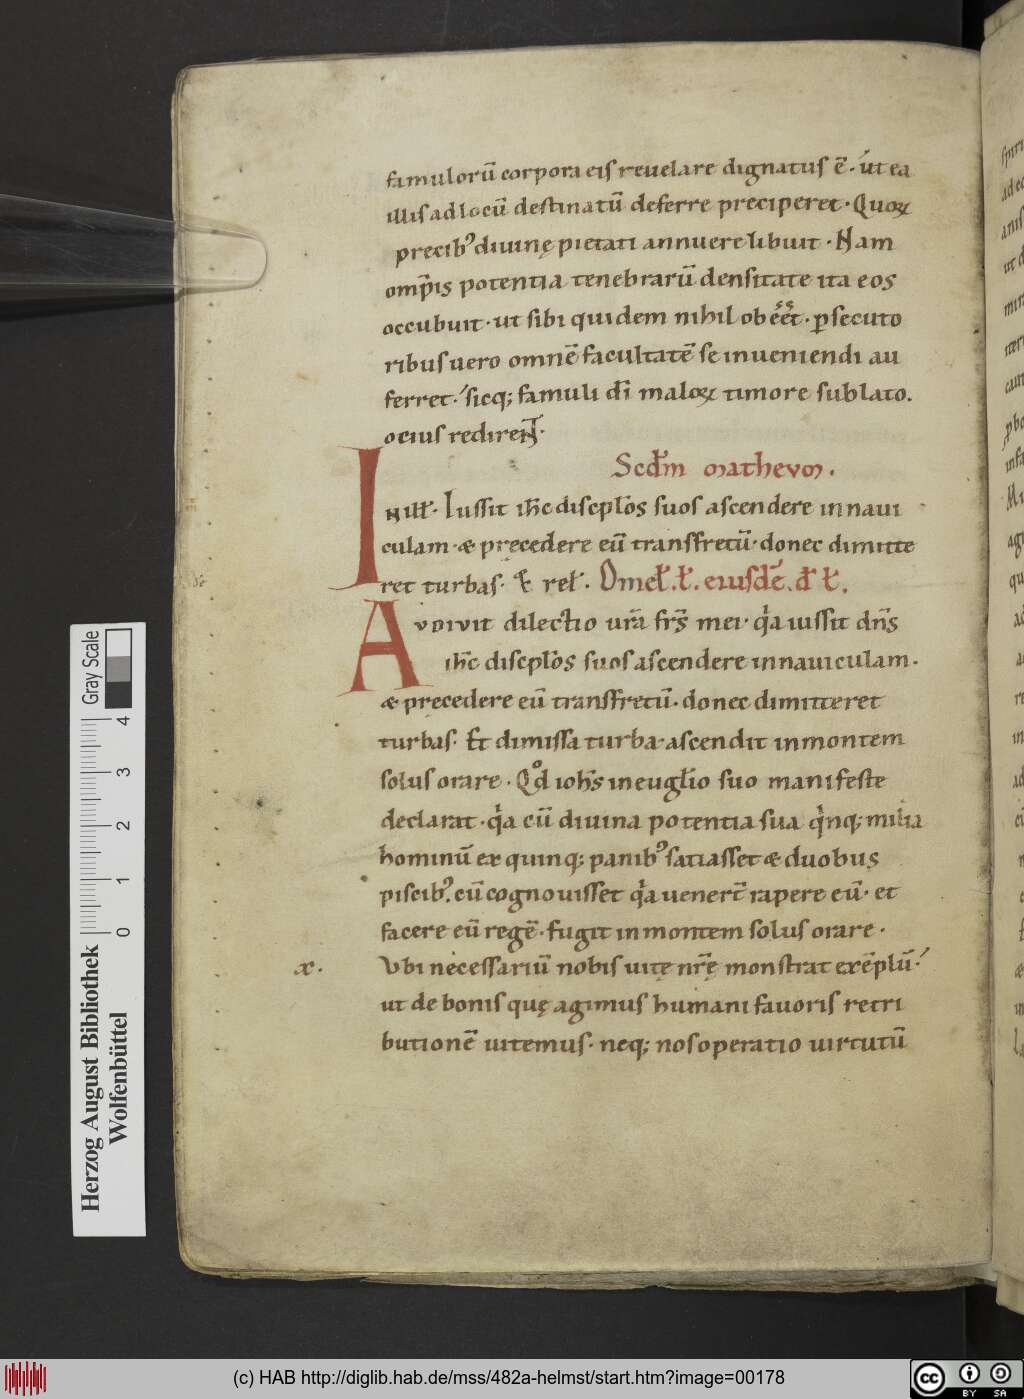 famulorū corpora eis reuelare dignatus ē. ut ea
illis ad locū destinatū deferre preciperet. Quoꝝ
precib' diuinę pietati annuere libuit. Nam
omp̄is potentia tenebrarū densitate ita eos
occubuit. ut sibi quidem nihil obēēt. ꝑsecuto
ribus uero omnē facultatē se inueniendi au
ferret. sicq; famuli dī maloꝝ timore sublato.
ocius redireNT.
Scdm̄ matheum.
Inill'. Iussit ihc̄ discpl'os suos ascendere in naui
culam. & precedere eū transfretū. donec dimitte
ret turbas. & rel'. Omel'. ł. eiusdē. d' ł.
Avdivit dilectio urā frs̄ mei. qa iussit dn̄s
ihc̄ discpl'os suos ascendere in nauiculam.
& precedere eū transfretū. donec dimitteret
turbas. Et dimissa turba. ascendit in montem
solus orare. Qd ioh̄s in eugl'io suo manifeste
declarat. qa cū diuina potentia sua qinq; milia
hominū ex quinq; panib' satiasset & duobus
piscib'. cū cognouisset qa uenerēt rapere eū. et
facere eū regē. fugit in montem solus orare.
æ. Vbi necessariū nobis uite nr̄ę monstrat exēplū.
ut de bonis quę agimus humani fauoris retri
butionē uitemus. neq; nos operatio uirtutū
Gray Scale
0 1 2 3 4
Herzog August Bibliothek
Wolfenbüttel
(c) HAB http://diglib.hab.de/mss/482a-helmst/start.htm?image=00178
cc BY SA